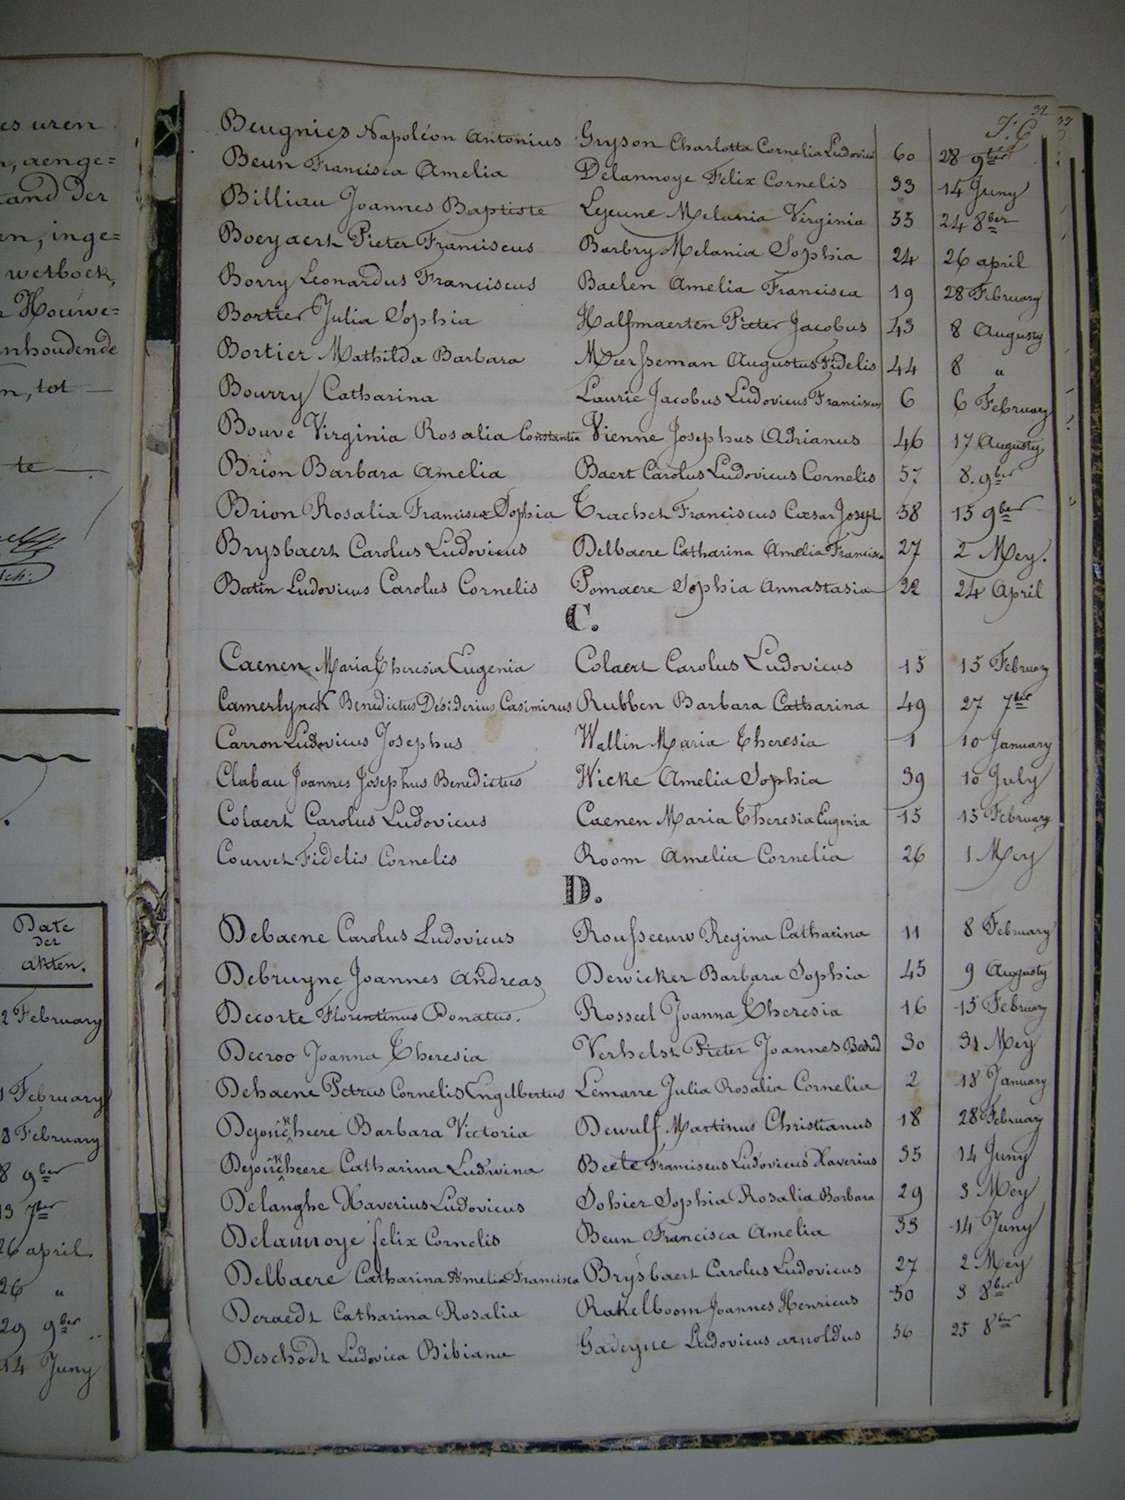 es uren
n, aenge=
tand der
en, inge=
wetboek,
Houwe=
nhoudende
n, tot —
te
Date
der
akten.
2 February
1 February
8 February
8 9ber
13 7ber
26 april.
26 "
29 9ber
14 Juny
32
Beugnies Napoléon Antonius Gryson Charlotta Cornelia Ludovica 60 28 9ber
Beun Francisca Amelia Delannoye Felix Cornelis 33 14 Juny
Billiau Joannes Baptiste Lejeune Melania Virginia 55 24 8ber
Boeyaert Pieter Franciscus Barbry Melania Sophia 24 26 april
Borry Leonardus Franciscus Baelen Amelia Francisca 19 28 February
Bortier Julia Sophia Halfmaerten Pieter Jacobus 43 8 Augusty
Bortier Mathilda Barbara Meersseman Augustus Fidelis 44 8 "
Bourry Catharina Laurie Jacobus Ludovicus Franciscus 6 6 February
Bouve Virginia Rosalia Constantia Vienne Josephus Adrianus 46 17 Augusty
Brion Barbara Amelia Baert Carolus Ludovicus Cornelis 57 8. 9ber
Brion Rosalia Francisca Sophia Trachet Franciscus Cæsar Joseph 58 15 9ber
Brysbaert Carolus Ludovicus Delbaere Catharina Amelia Francisca 27 2 Mey.
Batin Ludovicus Carolus Cornelis Pomaere Sophia Annastasia 22 24 April
C.
Caenen Maria Theresia Eugenia Colaert Carolus Ludovicus 15 15 February
Camerlynck Benedictus Désiderius Casimirus Rubben Barbara Catharina 49 27 7ber
Carron Ludovicus Josephus Wallin Maria Theresia 1 10 January
Clabau Joannes Josephus Benedictus Wicke Amelia Sophia 39 10 July
Colaert Carolus Ludovicus Caenen Maria Theresia Eugenia 15 15 February
Courvet Fidelis Cornelis Room Amelia Cornelia 26 1 Mey
D.
Debaene Carolus Ludovicus Rousseeuw Regina Catharina 11 8 February
Debruyne Joannes Andreas Dewicker Barbara Sophia 45 9 Augusty
Decorte Florentinus Donatus. Rosseel Joanna Theresia 16 15 February
Decroo Joanna Theresia Verhelst Pieter Joannes 30 31 Mey
Dehaene Petrus Cornelis Engelbertus Lemarre Julia Rosalia Cornelia 2 18 January
Dejonckheere Barbara Victoria Dewulf Martinus Christianus 18 28 February
Dejonckheere Catharina Ludwina Beete Franciscus Ludovicus Xaverius 35 14 Juny
Delanghe Xaverius Ludovicus Sohier Sophia Rosalia Barbara 29 3 Mey
Delannoye felix Cornelis Beun Francisca Amelia 33 14 Juny
Delbaere Catharina Amelia Francisca Brysbaert Carolus Ludovicus 27 2 Mey
Deraedt Catharina Rosalia Rakelboom Joannes Henricus 50 3 8ber
Deschodt Ludovica Bibiana Gadeyne Ludovicus arnoldus 56 25 8ber